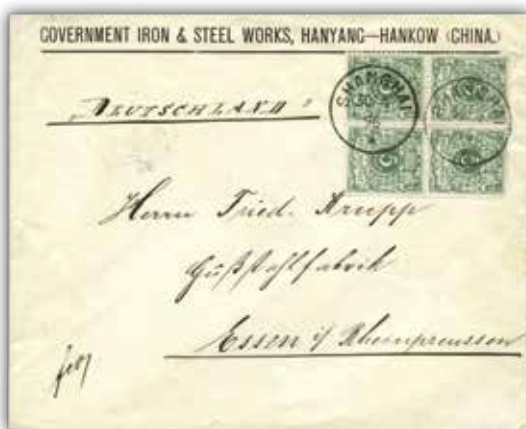 GOVERNMENT IRON & STEEL WORKS, HANYANG—HANKOW (CHINA.)
SHANGHAI
"DEUTSCHLAND"
Herrn Fried. Krupp
Gußstahlfabrik
Essen i/ Rheinpreussen